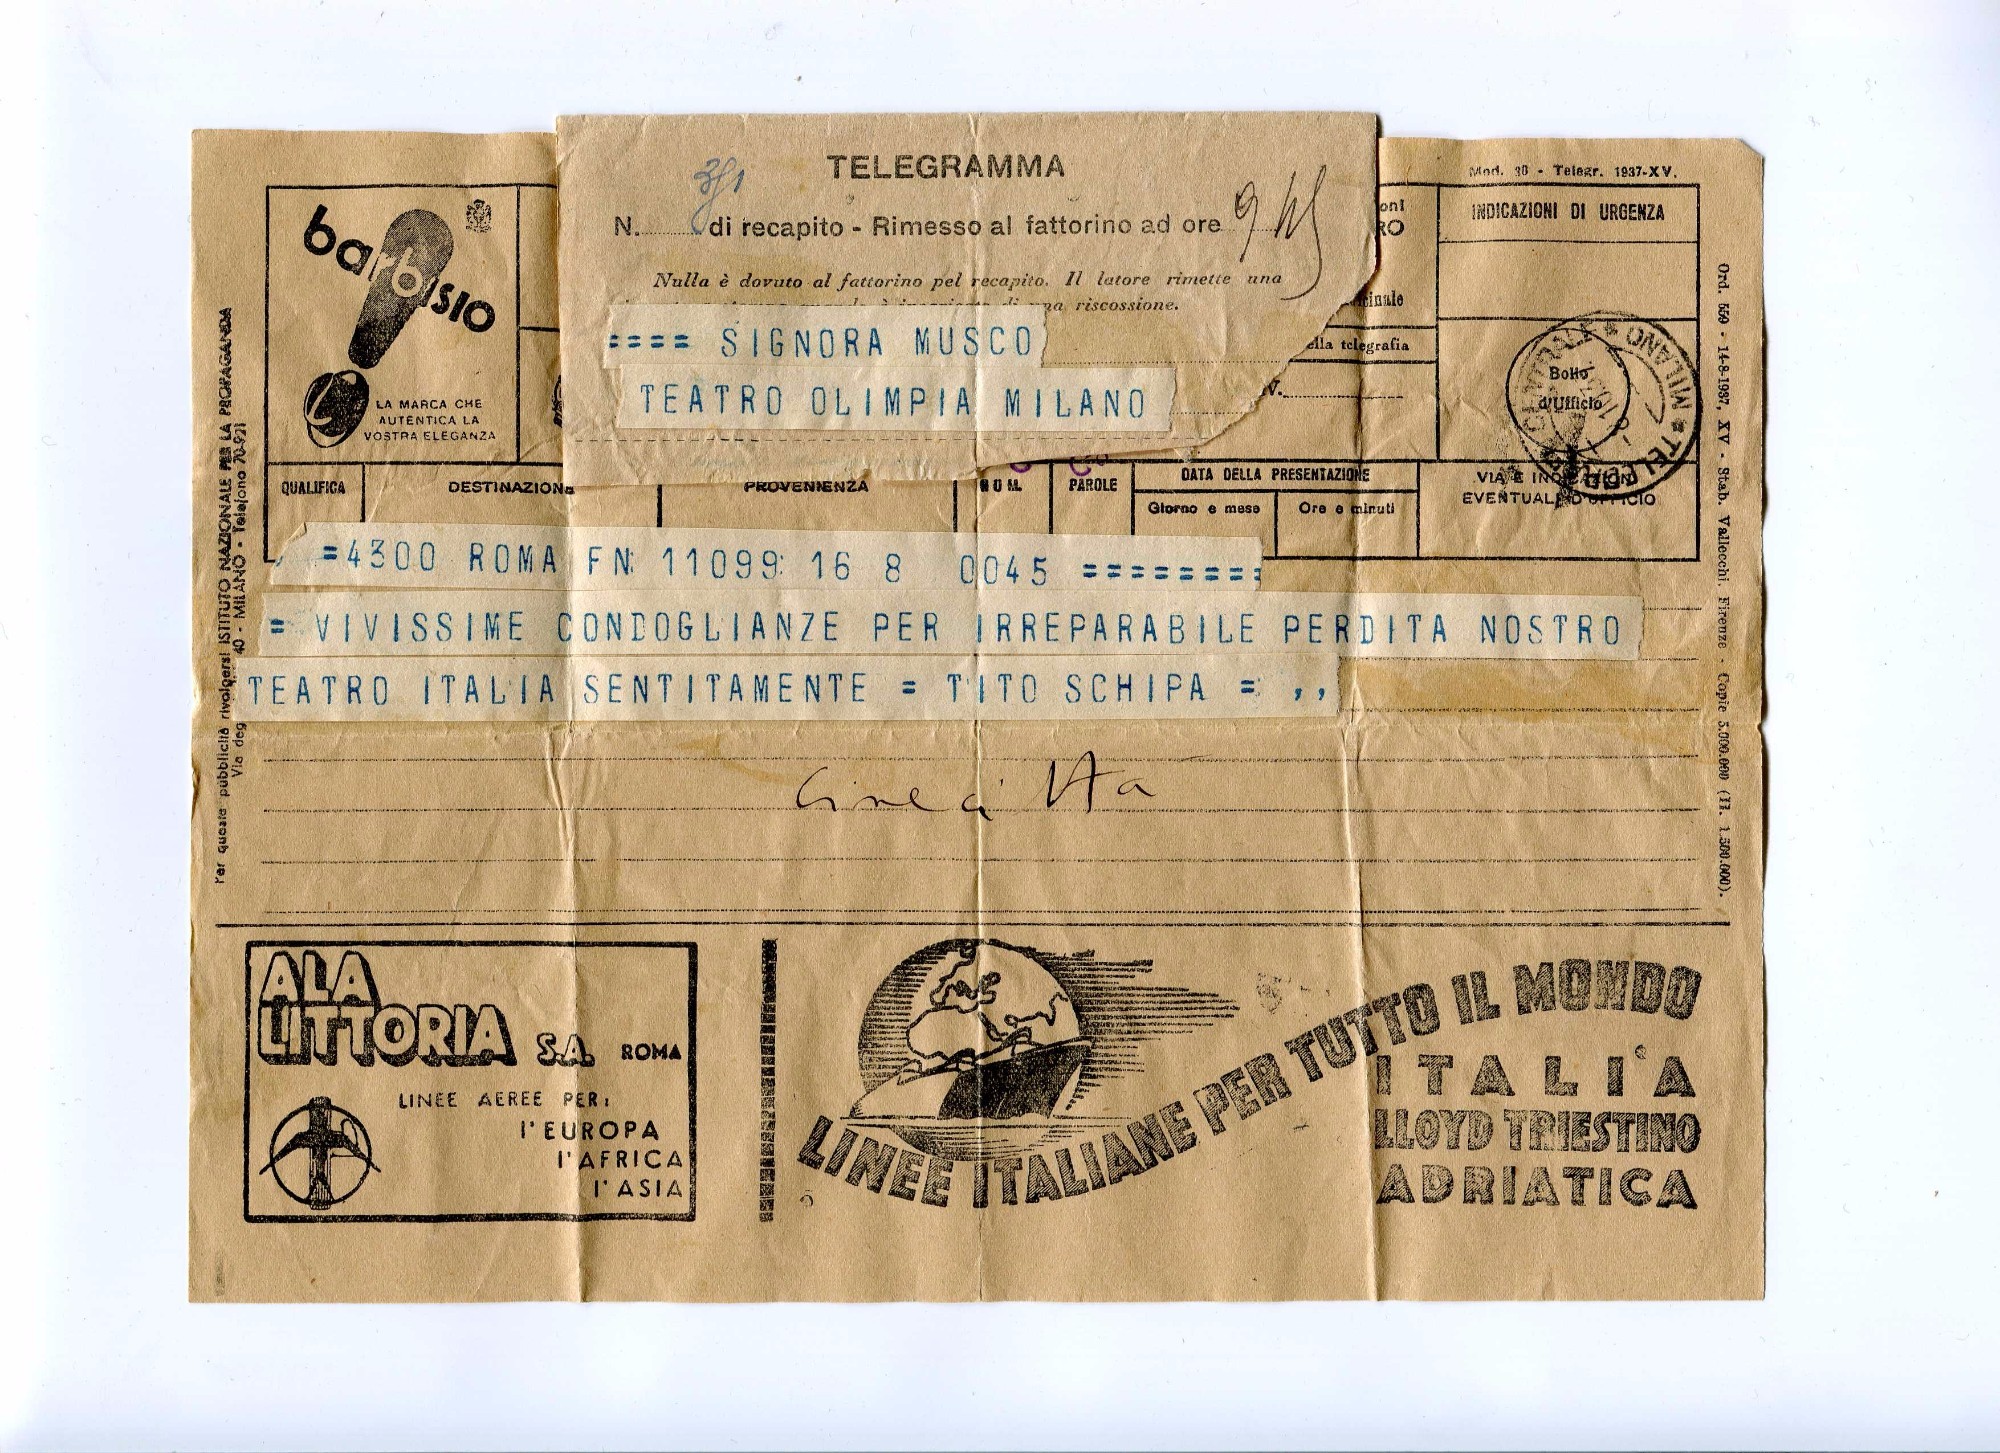 TELEGRAMMA
Mod. 30 - Telegr. 1937-XV.
N. di recapito - Rimesso al fattorino ad ore 9 45
Nulla è dovuto al fattorino pel recapito. Il latore rimette una
una riscossione.
==== SIGNORA MUSCO
TEATRO OLIMPIA MILANO
barbisio
LA MARCA CHE
AUTENTICA LA
VOSTRA ELEGANZA
INDICAZIONI DI URGENZA
ella telegrafia
Bollo
d'Ufficio
MILANO * TELEGR
QUALIFICA
DESTINAZIONE
PROVENIENZA
NUM.
PAROLE
DATA DELLA PRESENTAZIONE
Giorno e mese
Ore e minuti
VIA E INDICAZIONI
EVENTUALI D'UFFICIO
=4300 ROMA FN 11099 16 8 0045 ========
= VIVISSIME CONDOGLIANZE PER IRREPARABILE PERDITA NOSTRO
TEATRO ITALIA SENTITAMENTE = TITO SCHIPA = ,,
Cinecittà
Per queste pubblicità rivolgersi ISTITUTO NAZIONALE PER LA PROPAGANDA
Via deg 40 - MILANO - Telefono 70-921
Ord. 559 - 14-8-1937, XV - Stab. Vallecchi Firenze - Copie 5.000.000 (H. 1.500.000).
ALA
LITTORIA S.A. ROMA
LINEE AEREE PER:
l'EUROPA
l'AFRICA
l'ASIA
LINEE ITALIANE PER TUTTO IL MONDO
ITALIA
LLOYD TRIESTINO
ADRIATICA